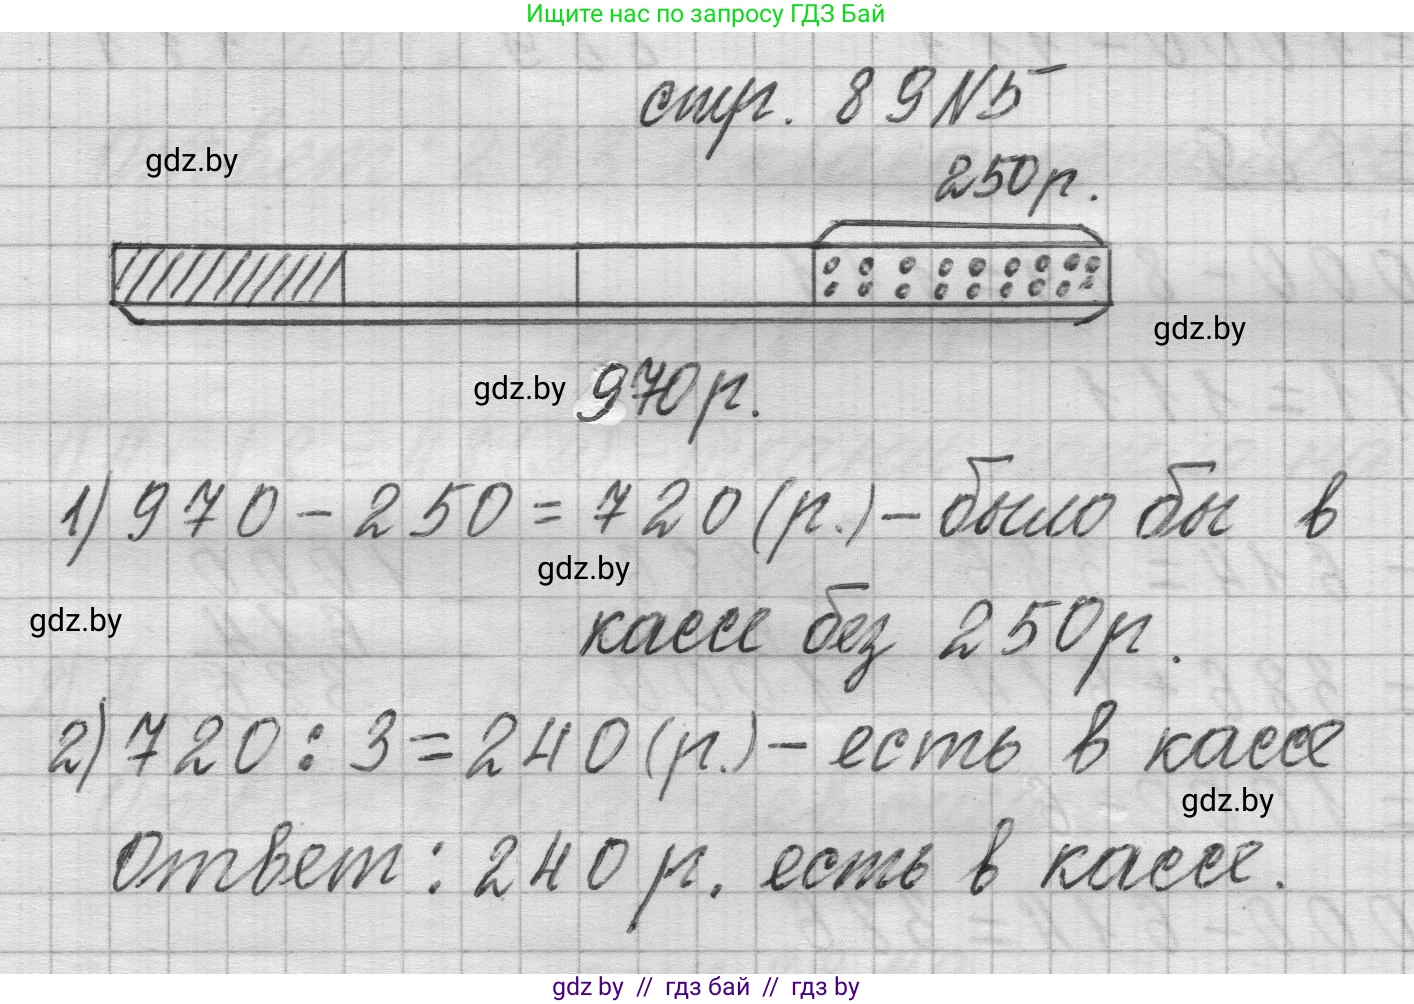 Ищите нас по запросу ГДЗ Бай
стр. 89 N5
gdz.by
250 р.
gdz.by
gdz.by 970 р.
1) 970 - 250 = 720 (р.) - было бы в
gdz.by
кассе без 250 р.
gdz.by
2) 720 : 3 = 240 (р.) - есть в кассе
gdz.by
Ответ : 240 р. есть в кассе.
gdz.by // гдз бай // гдз by